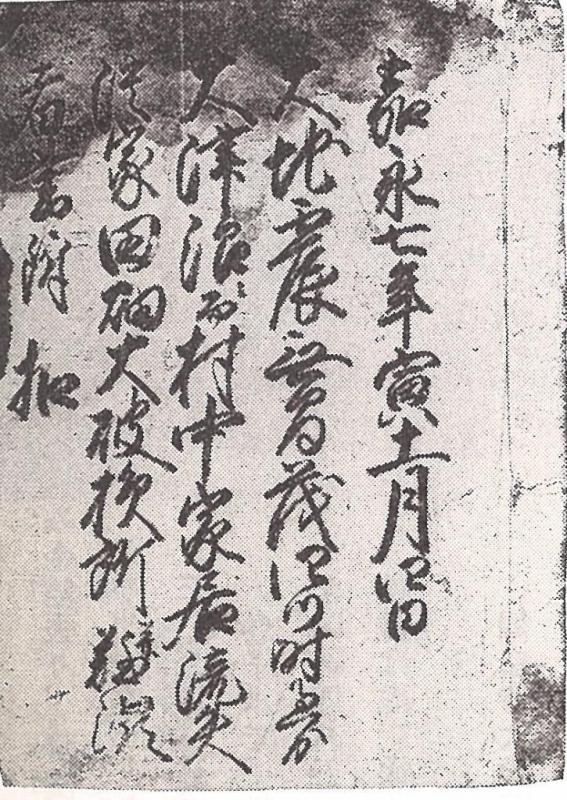 嘉永七年寅十一月四日
大地震無間茂四ツ時
大津浪ニ而村中家居流失
潰家田畑大破損所難渋
者書附 扣